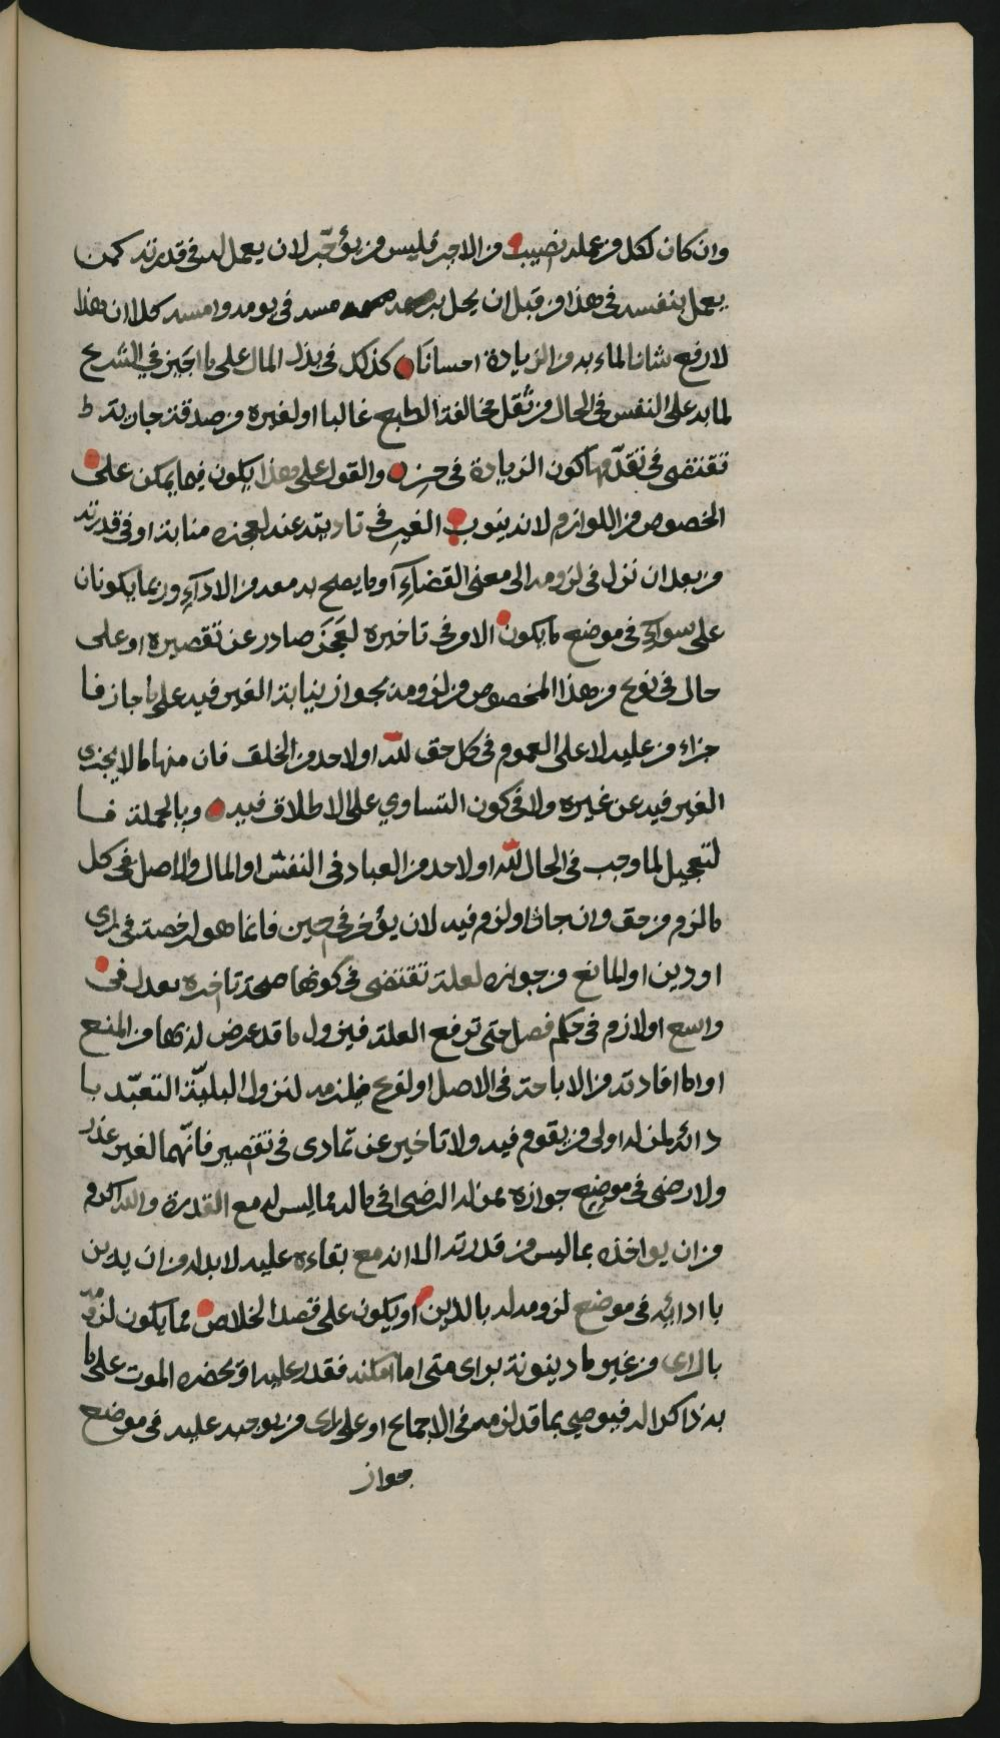 وان كان لكل من عمله نصيب من الاجر فليس من يؤجر لان يعمل له في قدرته كمن
يعمل بنفسه في هذا من قبل ان يحل به رمسه في يومه وامسه كلا ان هذا
لارفع شانا لما به من الزيادة احسانا كذلك في بذل المال على ما اجيز في الشرع
لما به على النفس في الحال من ثقل مخالفة الطبع غالبا او لغيره من صدقة جارية
تقتضي في تقدمها كون الزيادة في حسن والقول على هذا يكون فيما يمكن على
الخصوص من اللوازم لانه ينوب الغير في تاديته عند لعجزه منابة او في قدرته
من بعد ان نزل في لزومه الى معنى القضاء او ما يصح به معه من الاداء وربما يكونان
على سواء في موضع ما يكون الامر في تاخيره لعجز صادر عن تقصيره او على
حال في نوع من هذا المخصوص من لزومه بجواز نيابة الغير فيه على ما جاز فا
جزاء من عليه لا على العموم في كل حق لله او لاحد من الخلق فان منها ما لا يجزي
الغير فيه عن غيره ولا في كون التساوي على الاطلاق فيه وبالجملة فا
لتعجيل لما وجب في الحال لله او لاحد من العباد في النفس او المال والاصل في كل
ما لزم من حق وان جاز او لزم فيه لان يؤخر في حين فانما هو لرخصة في راي
او دين او لمانع من جوازه لعلة تقتضي في كونها صحة تاخره بعدل في
واسع او لازم في حكم فصل حتى ترفع العلة فيزول ما قد عرض لذكها من المنع
او ما افادته من الاباحة في الاصل او لفرع فلزمه لنزول البلية التعبد با
دائه لمن له اولى من يقوم فيه ولا تاخير عن تمادى في تقصير فانهما لغير عذر
ولا رضى في موضع جوازه ممن له الرضى في ماله مما ليس له مع القدرة والله اكرم
من ان يواخذه بما ليس من قدرته الا انه مع بقاءه عليه لا بد له من ان يدين
با ادائه في موضع لزومه له بالدين او يكون على قصد الخلاص مما يكون لزومه
بالراي من غير ما دينونة براى متى اما امكنه فقدر عليه او تحضره الموت على ما
به ذاكرا له فيوصي بما قد لزمه في الاجماع او على راى من يوجبه عليه في موضع
جواز